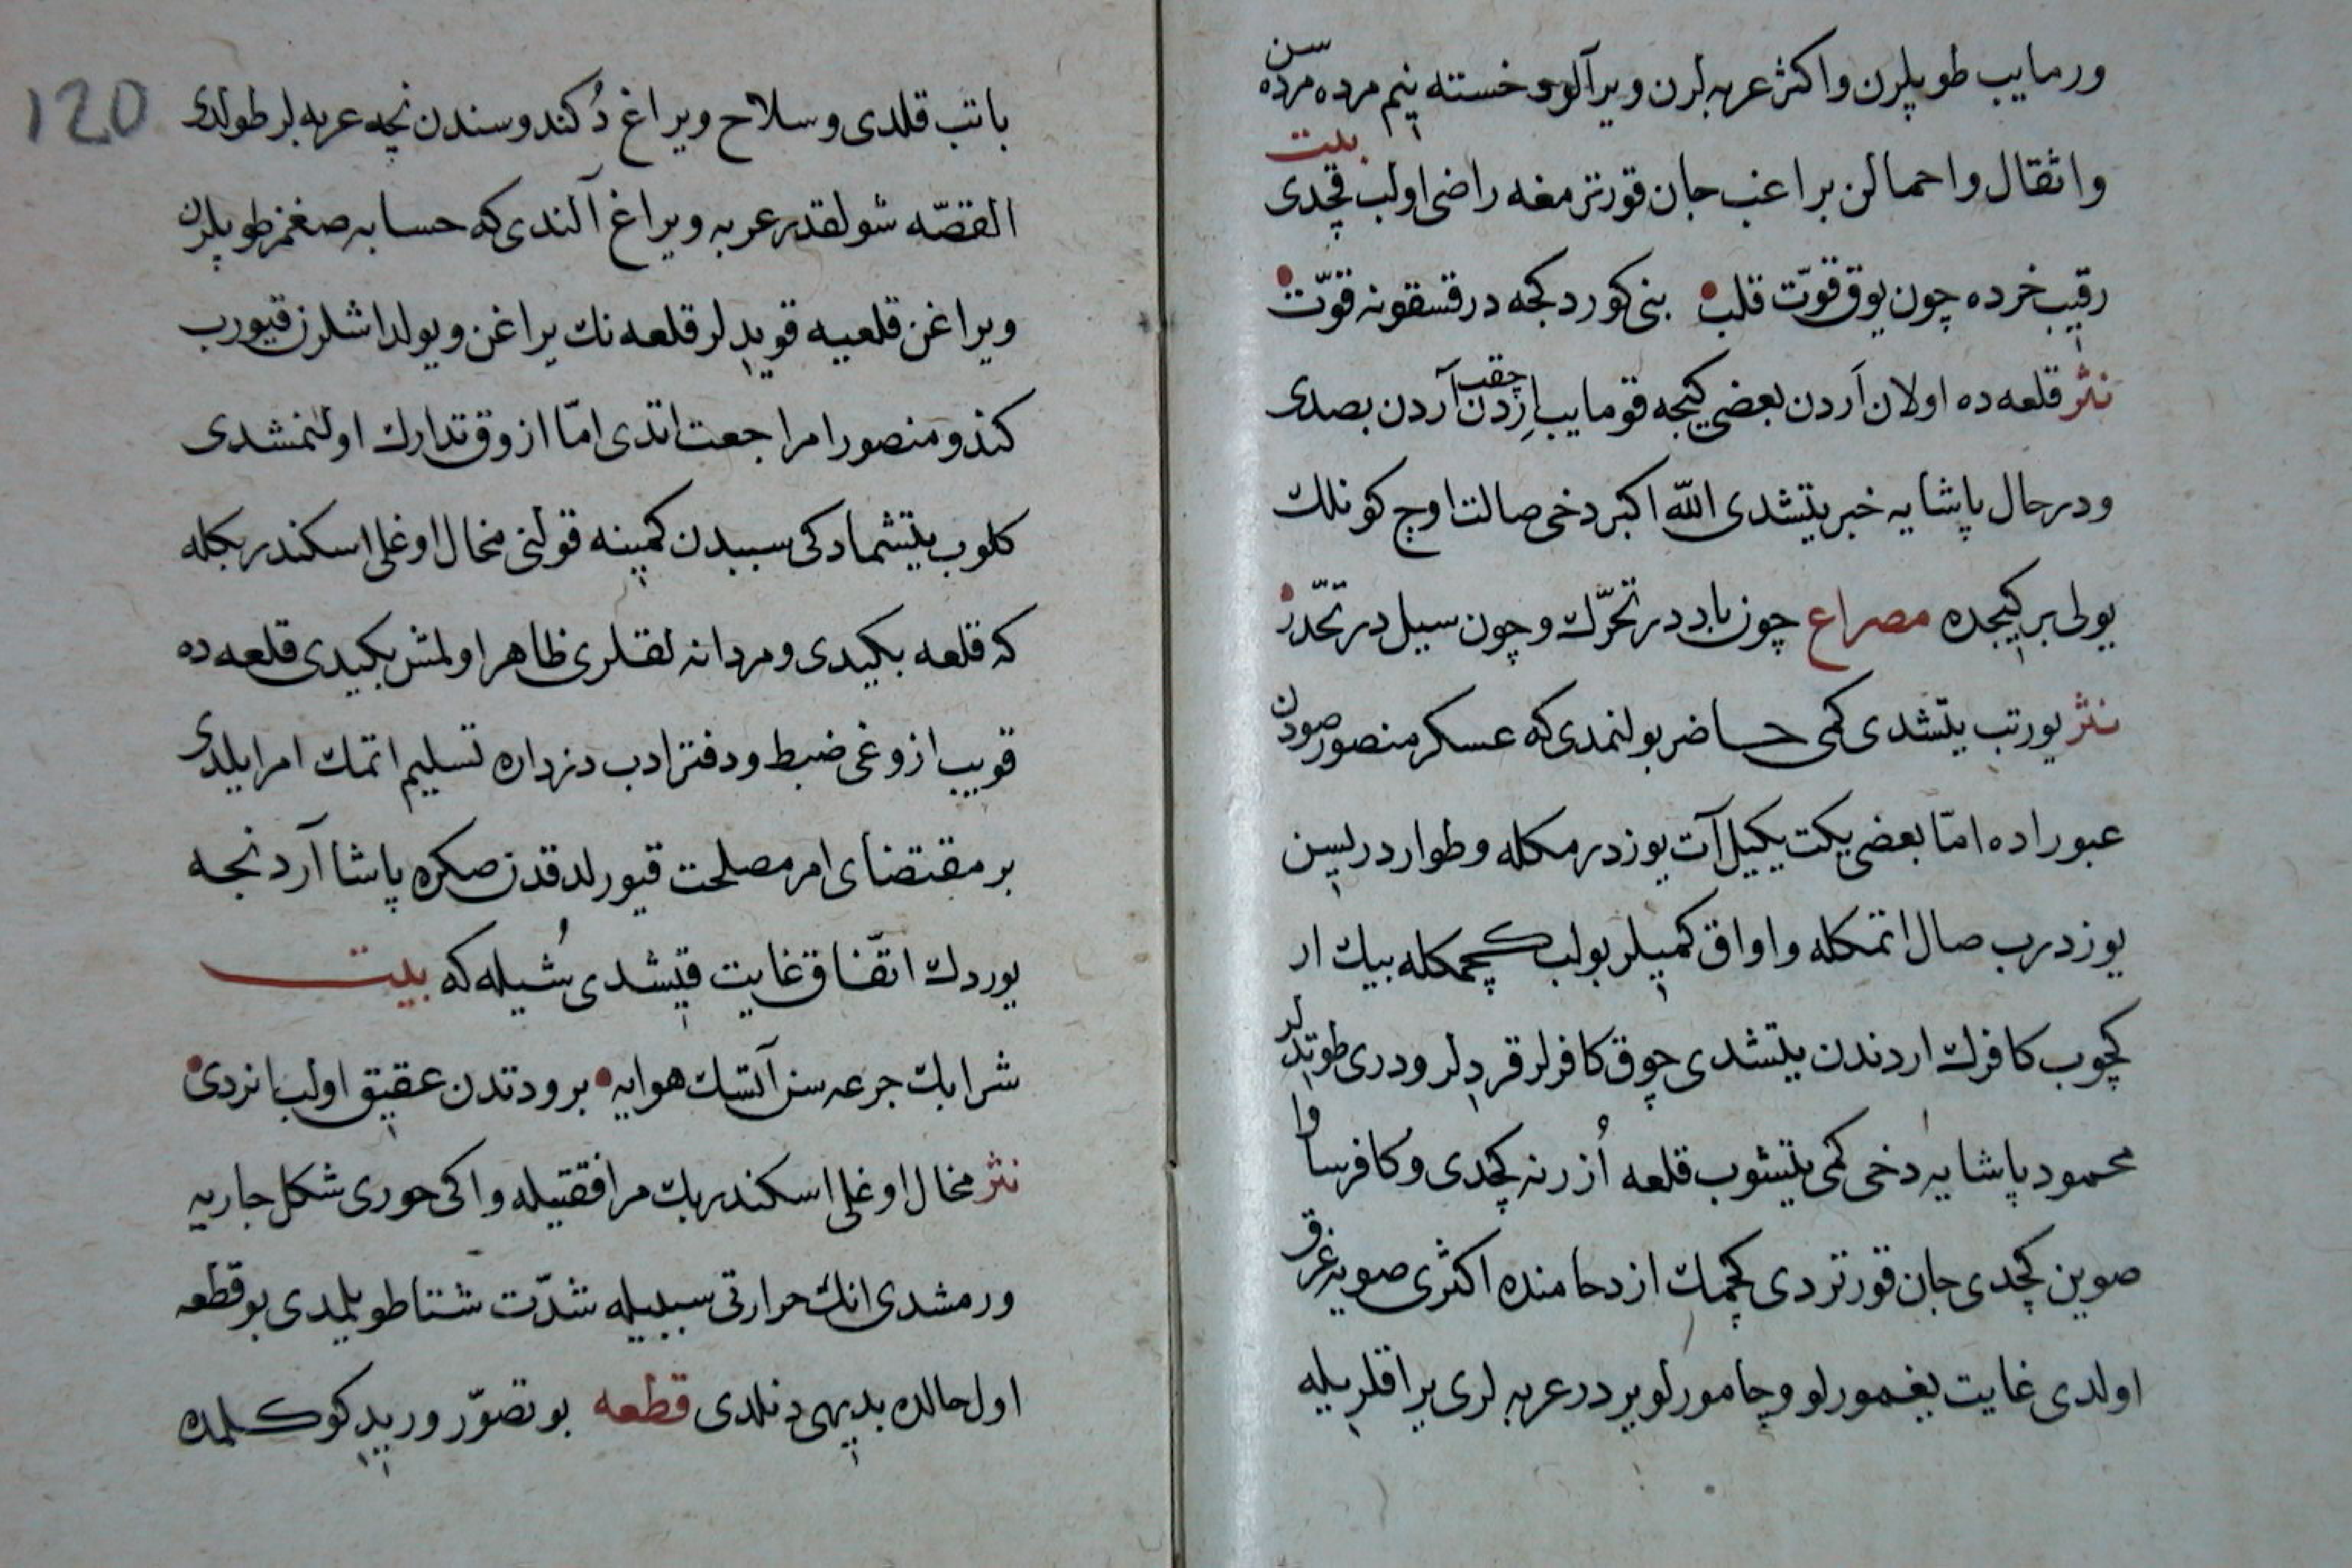 ورمايب طوپلرن واكثر عربه لرن ويراَلوو خسته نيم مرده مرده سن
واثقال واحمالن براغب جان قورترمغه راضى اولب قچدى بيت
رقيب خرده چون يوق قوّت قلب بنى كوردكجه در قسقونه قوّت
نثر قلعه ده اولان اَردن بعضى كيجه قومايب چقب اِردن آردن بصدى
ودرحال پاشايه خبر يتشدى الله اكبر دخى صالت اوچ كونلك
يولى بر كيجده مصراع چون باد در تحرّك و چون سيل در تحدّر
نثر يورتب يتشدى كمى حاضر بولنمدى كه عسكر منصور صودن
عبور اده امّا بعضى يكت يكيل آت يوزدرمكله وطوار دريسن
يوزدرب صال اتمكله واواق كميلر بولب كچمكله بيك ار
كچوب كافرك اردندن يتشدى چوق كافرلر قردلر ودرى طوتدلر
محمود پاشايه دخى كمى يتشوب قلعه اُزرنه كچدى وكافر ساوا
صوين كچدى جان قورتردى كچمك ازدحامنده اكثرى صويه غرق
اولدى غايت يغمورلو وچامورلو يردر عربه لرى يراقلريله
120
باتب قلدى وسلاح ويراغ دُكندوسندن نچه عربه لر طولدى
القصّه شولقدر عربه ويراغ آلندى كه حسابه صغمز طوپلرن
ويراغن قلعيه قويدلر قلعه نك يراغن ويولداشلرن قيورب
كندو منصورا مراجعت اتدى امّا ازوق تدارك اولنمشدى
كلوب يتشمادكى سببدن كمينه قولنى مخال اوغلى اسكندر بكله
كه قلعه بكيدى ومردانه لقلرى ظاهر اولمش بكيدى قلعه ده
قويب ازوغى ضبط ودفتر ادب دزداره تسليم اتمك امر ايلدى
بر مقتضاى امر مصلحت قيورلدقدن صكره پاشا آردنجه
يوردك اتّفاق غايت قيشدى شُيله كه بيت
شرابك جرعه سن آتسك هوايه برودتدن عقيق اولب انردى
نثر مخال اوغلى اسكندر بك مرافقتيله واكى حورى شكل جاريه
ورمشدى انك حرارتى سببيله شدّت شتا طويلمدى بو قطعه
اول حالده بديهى دنلدى قطعه بو تصوّر وريد كوكلمده